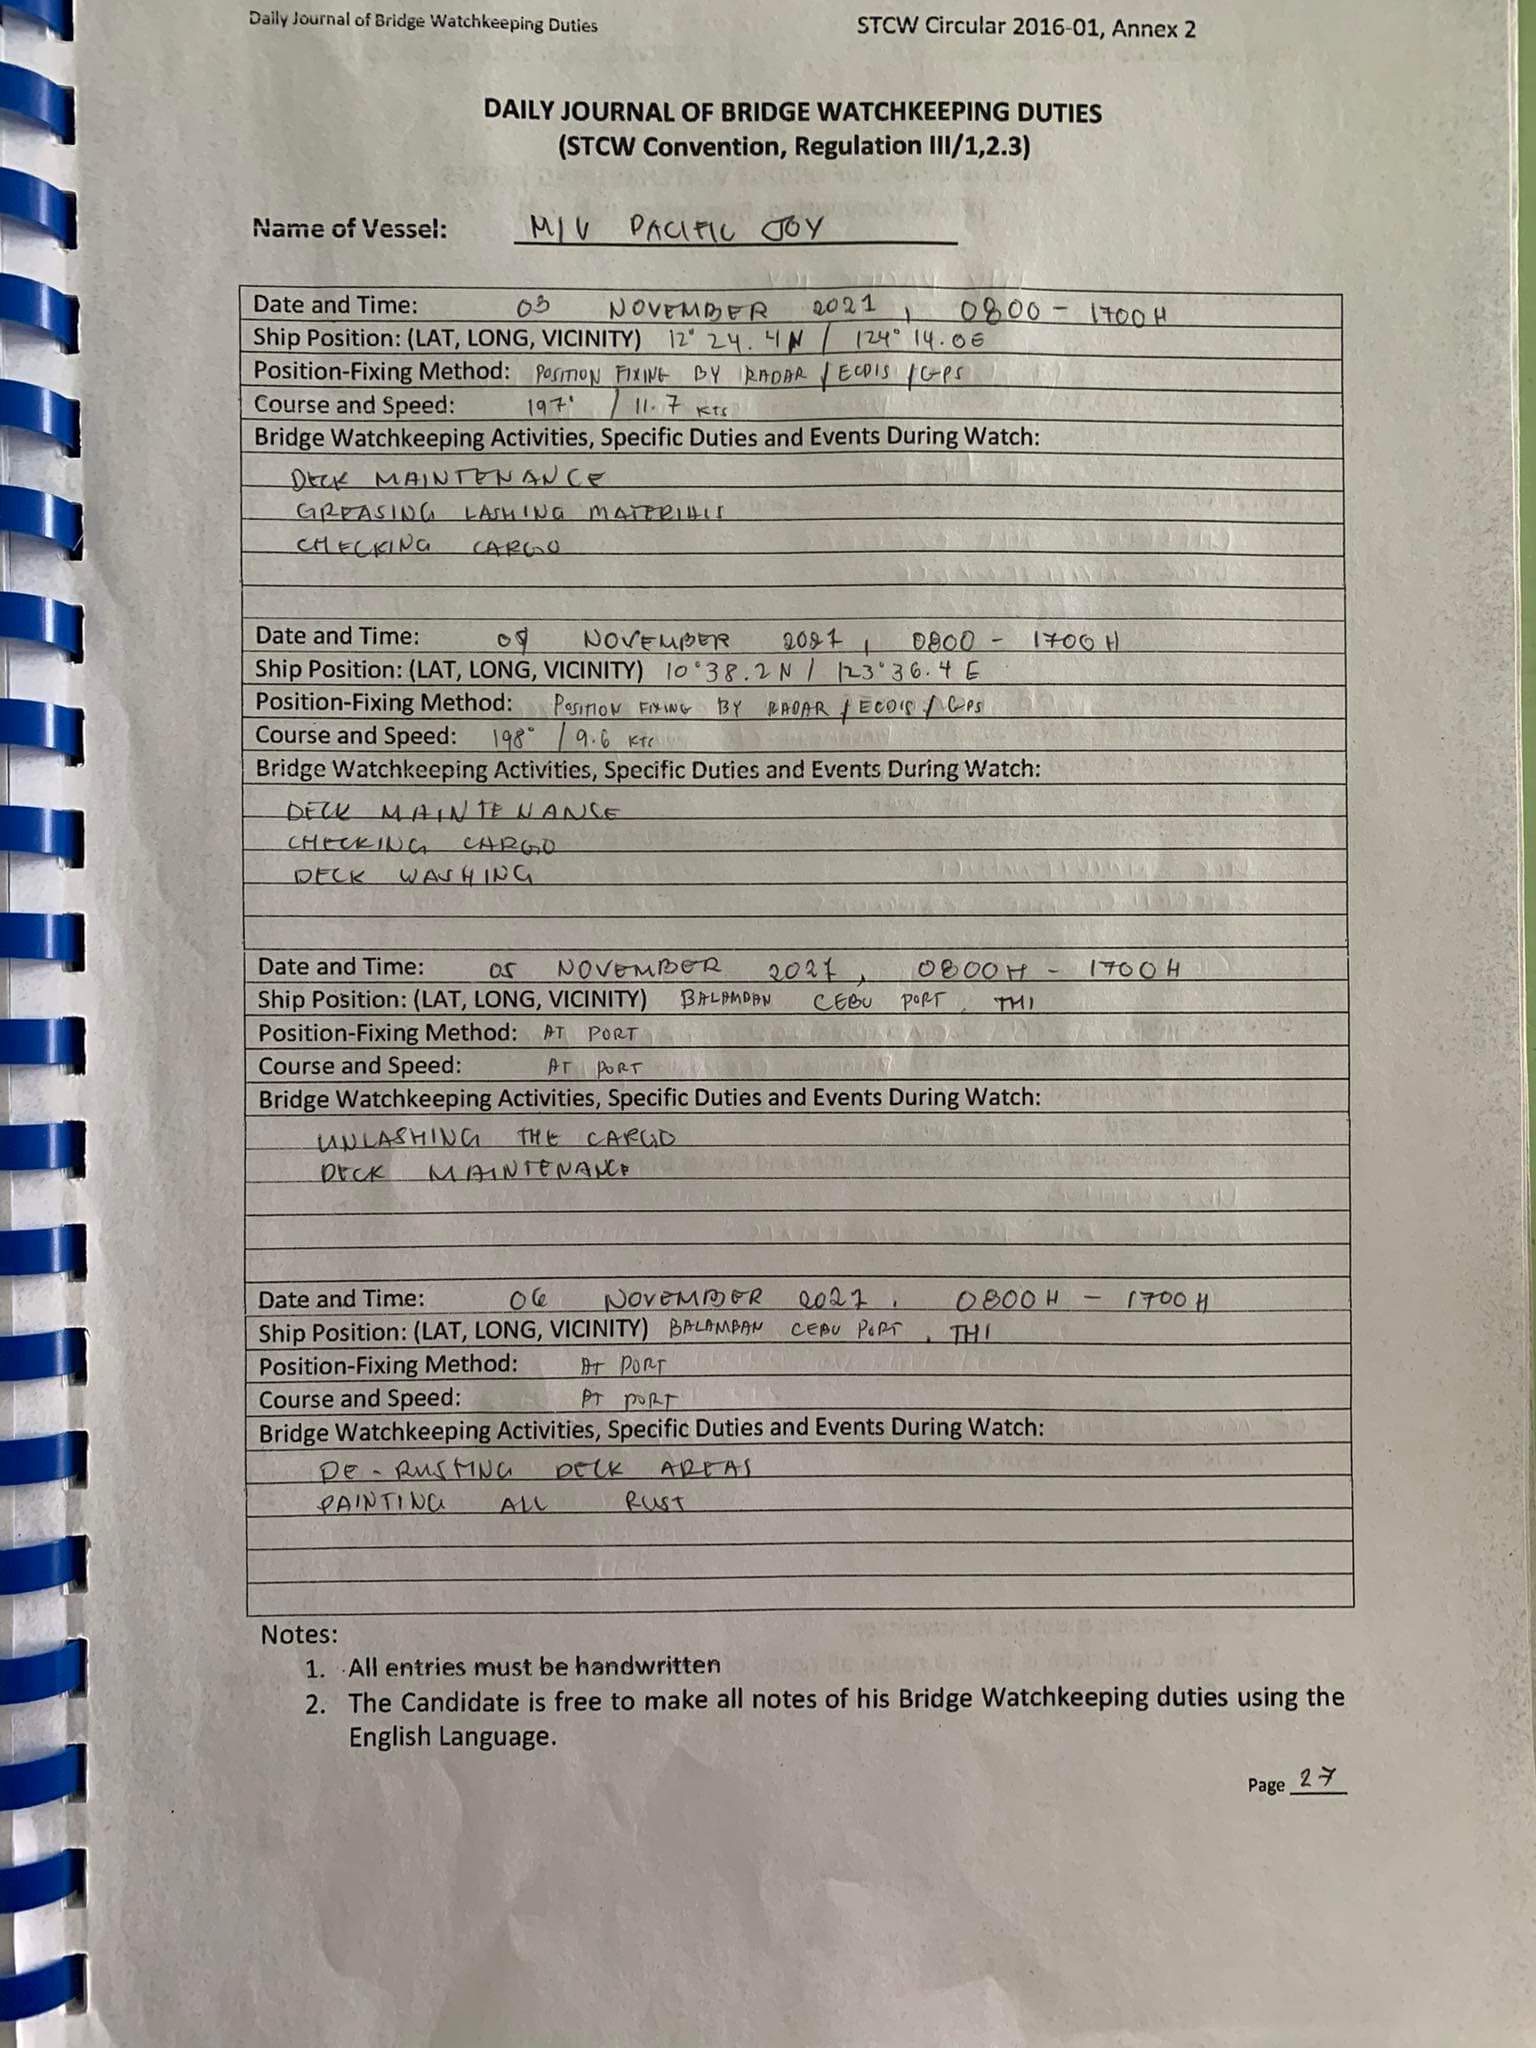 Daily Journal of Bridge Watchkeeping Duties STCW Circular 2016-01, Annex 2
DAILY JOURNAL OF BRIDGE WATCHKEEPING DUTIES
(STCW Convention, Regulation III/1,2.3)
Name of Vessel: M/V PACIFIC JOY
Date and Time: 03 NOVEMBER 2021, 0800 - 1700H
Ship Position: (LAT, LONG, VICINITY) 12° 24.4N / 124° 14.0E
Position-Fixing Method: POSITION FIXING BY RADAR / ECDIS / GPS
Course and Speed: 197° / 11.7 KTS
Bridge Watchkeeping Activities, Specific Duties and Events During Watch:
DECK MAINTENANCE
GREASING LASHING MATERIALS
CHECKING CARGO
Date and Time: 04 NOVEMBER 2021, 0800 - 1700H
Ship Position: (LAT, LONG, VICINITY) 10°38.2N / 123°36.4 E
Position-Fixing Method: POSITION FIXING BY RADAR / ECDIS / GPS
Course and Speed: 198° / 9.6 KTS
Bridge Watchkeeping Activities, Specific Duties and Events During Watch:
DECK MAINTENANCE
CHECKING CARGO
DECK WASHING
Date and Time: 05 NOVEMBER 2021, 0800H - 1700H
Ship Position: (LAT, LONG, VICINITY) BALAMBAN CEBU PORT, THI
Position-Fixing Method: AT PORT
Course and Speed: AT PORT
Bridge Watchkeeping Activities, Specific Duties and Events During Watch:
UNLASHING THE CARGO
DECK MAINTENANCE
Date and Time: 06 NOVEMBER 2021, 0800H - 1700H
Ship Position: (LAT, LONG, VICINITY) BALAMBAN CEBU PORT, THI
Position-Fixing Method: AT PORT
Course and Speed: AT PORT
Bridge Watchkeeping Activities, Specific Duties and Events During Watch:
DE-RUSTING DECK AREAS
PAINTING ALL RUST
Notes:
1. All entries must be handwritten
2. The Candidate is free to make all notes of his Bridge Watchkeeping duties using the
English Language.
Page 27